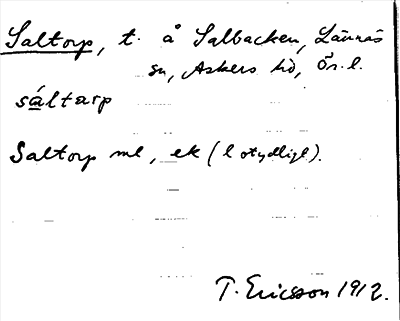 Saltorp, t. å Salbacken, Lännäs
sn, Askers hd, Ör. l.
sáltarp
Saltorp ml, ek (l otydligt).
T. Ericsson 1912.